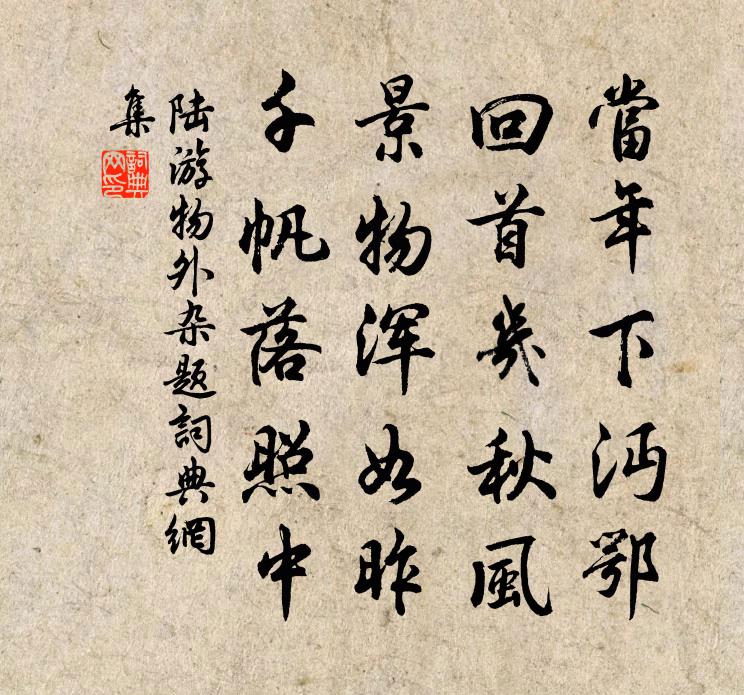 當年下沔鄂
回首幾秋風
景物渾如昨
千帆落照中
陆游物外杂题詞典網
集
詞典网印